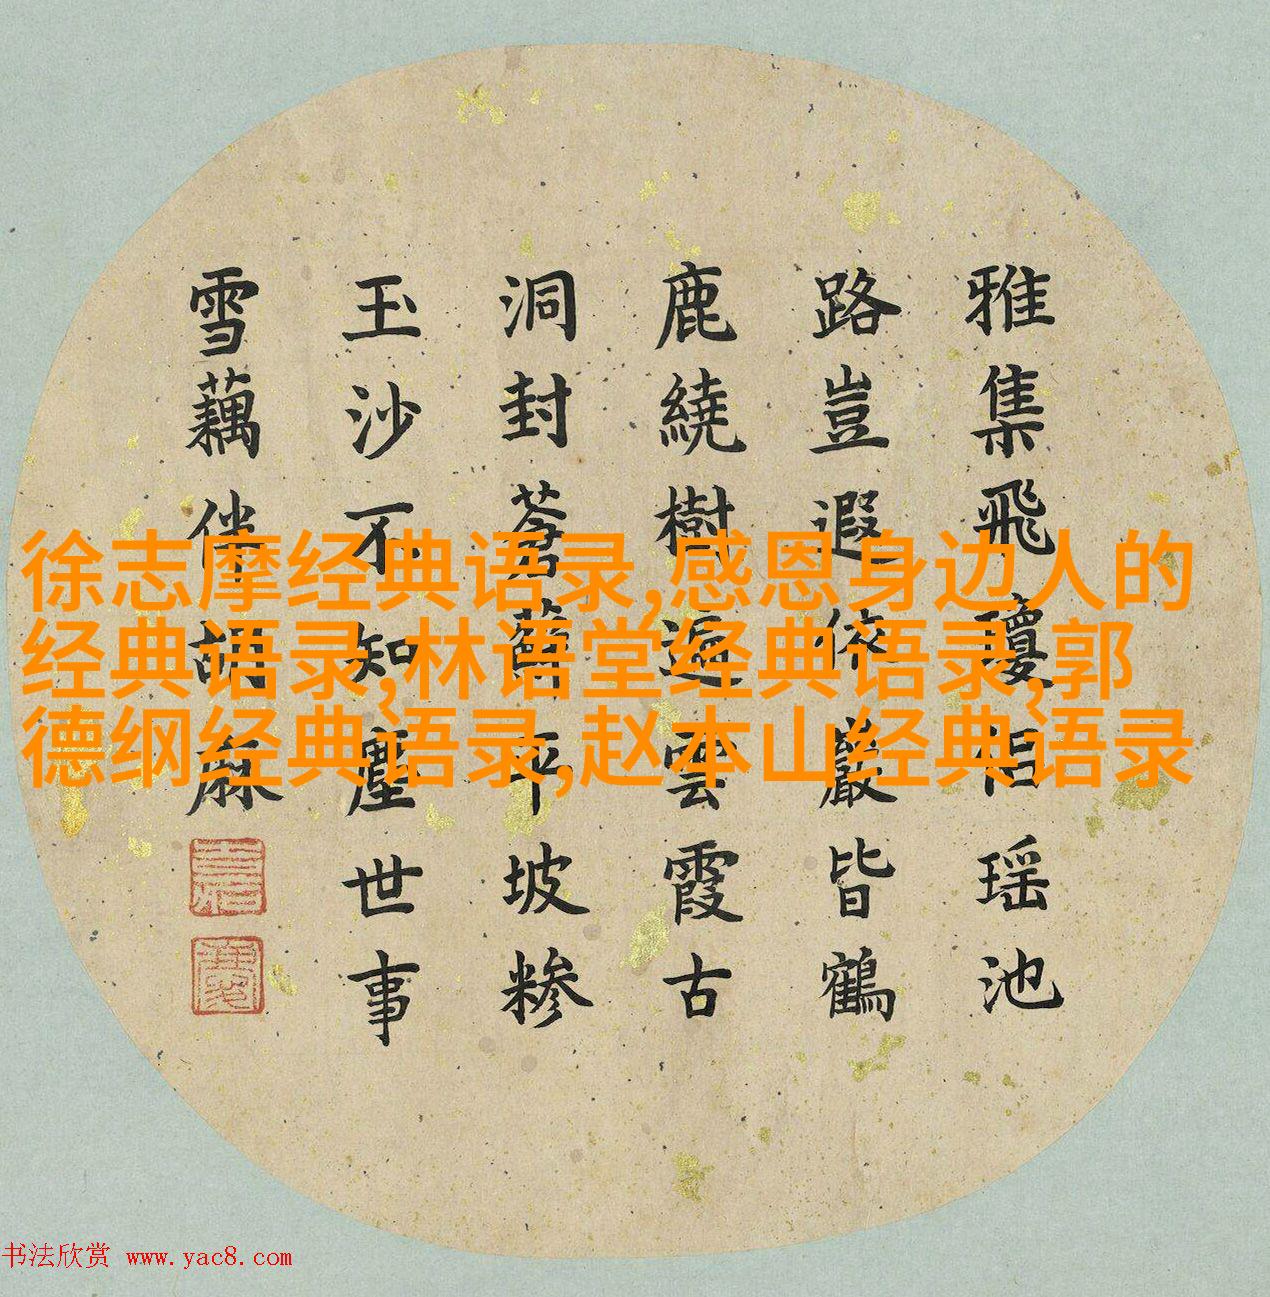 雅集飛瓊侣瑶池
路豈遐依巖皆鶴
鹿繞樹遍雲霞古
洞封蒼蘚平坡糁
玉沙不知塵世事
雪藕伴胡麻
徐志摩经典语录,感恩身边人的
经典语录,林语堂经典语录,郭
德纲经典语录,赵本山经典语录
书法欣赏 www.yac8.com